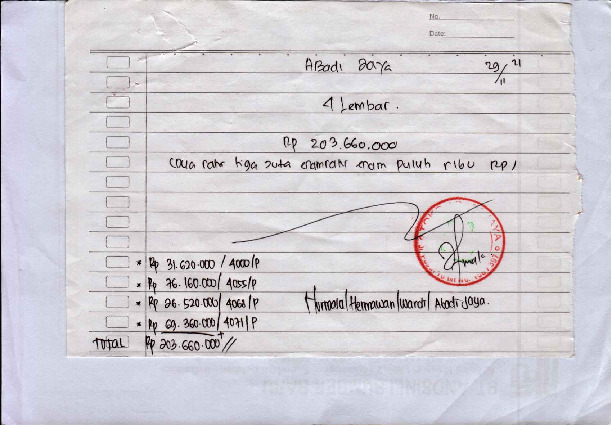 No.
Date:
Abadi Jaya 29/11 21
4 Lembar.
Rp 203.660.000
(Dua ratus tiga juta enam ratus enam puluh ribu Rp)
* Rp 31.620.000 / 4000/P
* Rp 76.160.000 / 4055/P
* Rp 26.520.000 / 4068/P
* Rp 69.360.000 / 4071/P
TOTAL Rp 203.660.000 + //
Nurmala/Hermawan/Wardi/Abadi Jaya.